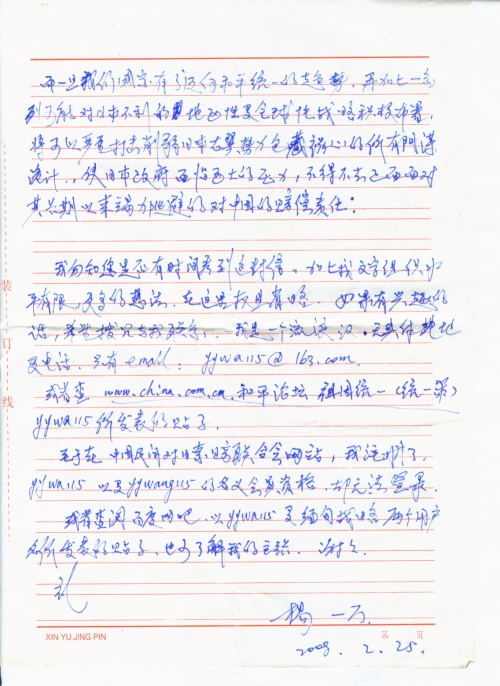 而一旦我们国家有了迈向和平统一的趋势，再加上一系
列可能对日本不利的地区性及全球性战略积极布署，
将可以严重打击削弱日本右翼势力包藏祸心的所有阴谋
诡计，使日本政府面临巨大的压力，不得不去正面面对
其长期以来竭力逃避的对中国的赔偿责任！
我勿知您是否有时间看到这封信。加上我文字组织水
平有限，更多的想法，在这里权且省略。如果有兴趣的
话，希望拨冗与我联系，我是一个流浪汉，无具体地址
及电话，只有email：yywa115@163.com。
或者查 www.china.com.cn 和平论坛 祖国统一（统一策）
yywa115所发表的贴子。
至于在 中国民间对日索赔联合会网站，我注册了，
yywa115以及yywang115的名义会员资格，却无法登录。
或者查阅百度网吧，以yywa115及缅甸战略两个用户
名所发表的贴子，也可了解我的主张。
礼
杨一万
2008. 2. 25.
装
订
线
XIN YU JING PIN
第 页